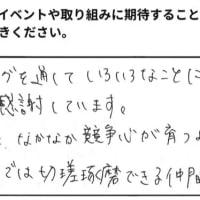 イベントや取り組みに期待すること
きください。
グを通していろいろなことに
感謝しています。
なかなか競争心が育つよ
では切瑳琢磨できる仲間